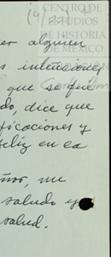 CENTRO DE
ESTUDIOS
DE HISTORIA
DE MEXICO
er alguien
s intenciones
que se que
do, dice que
ficaciones y
eliz en ca
me
saludo y
salud.